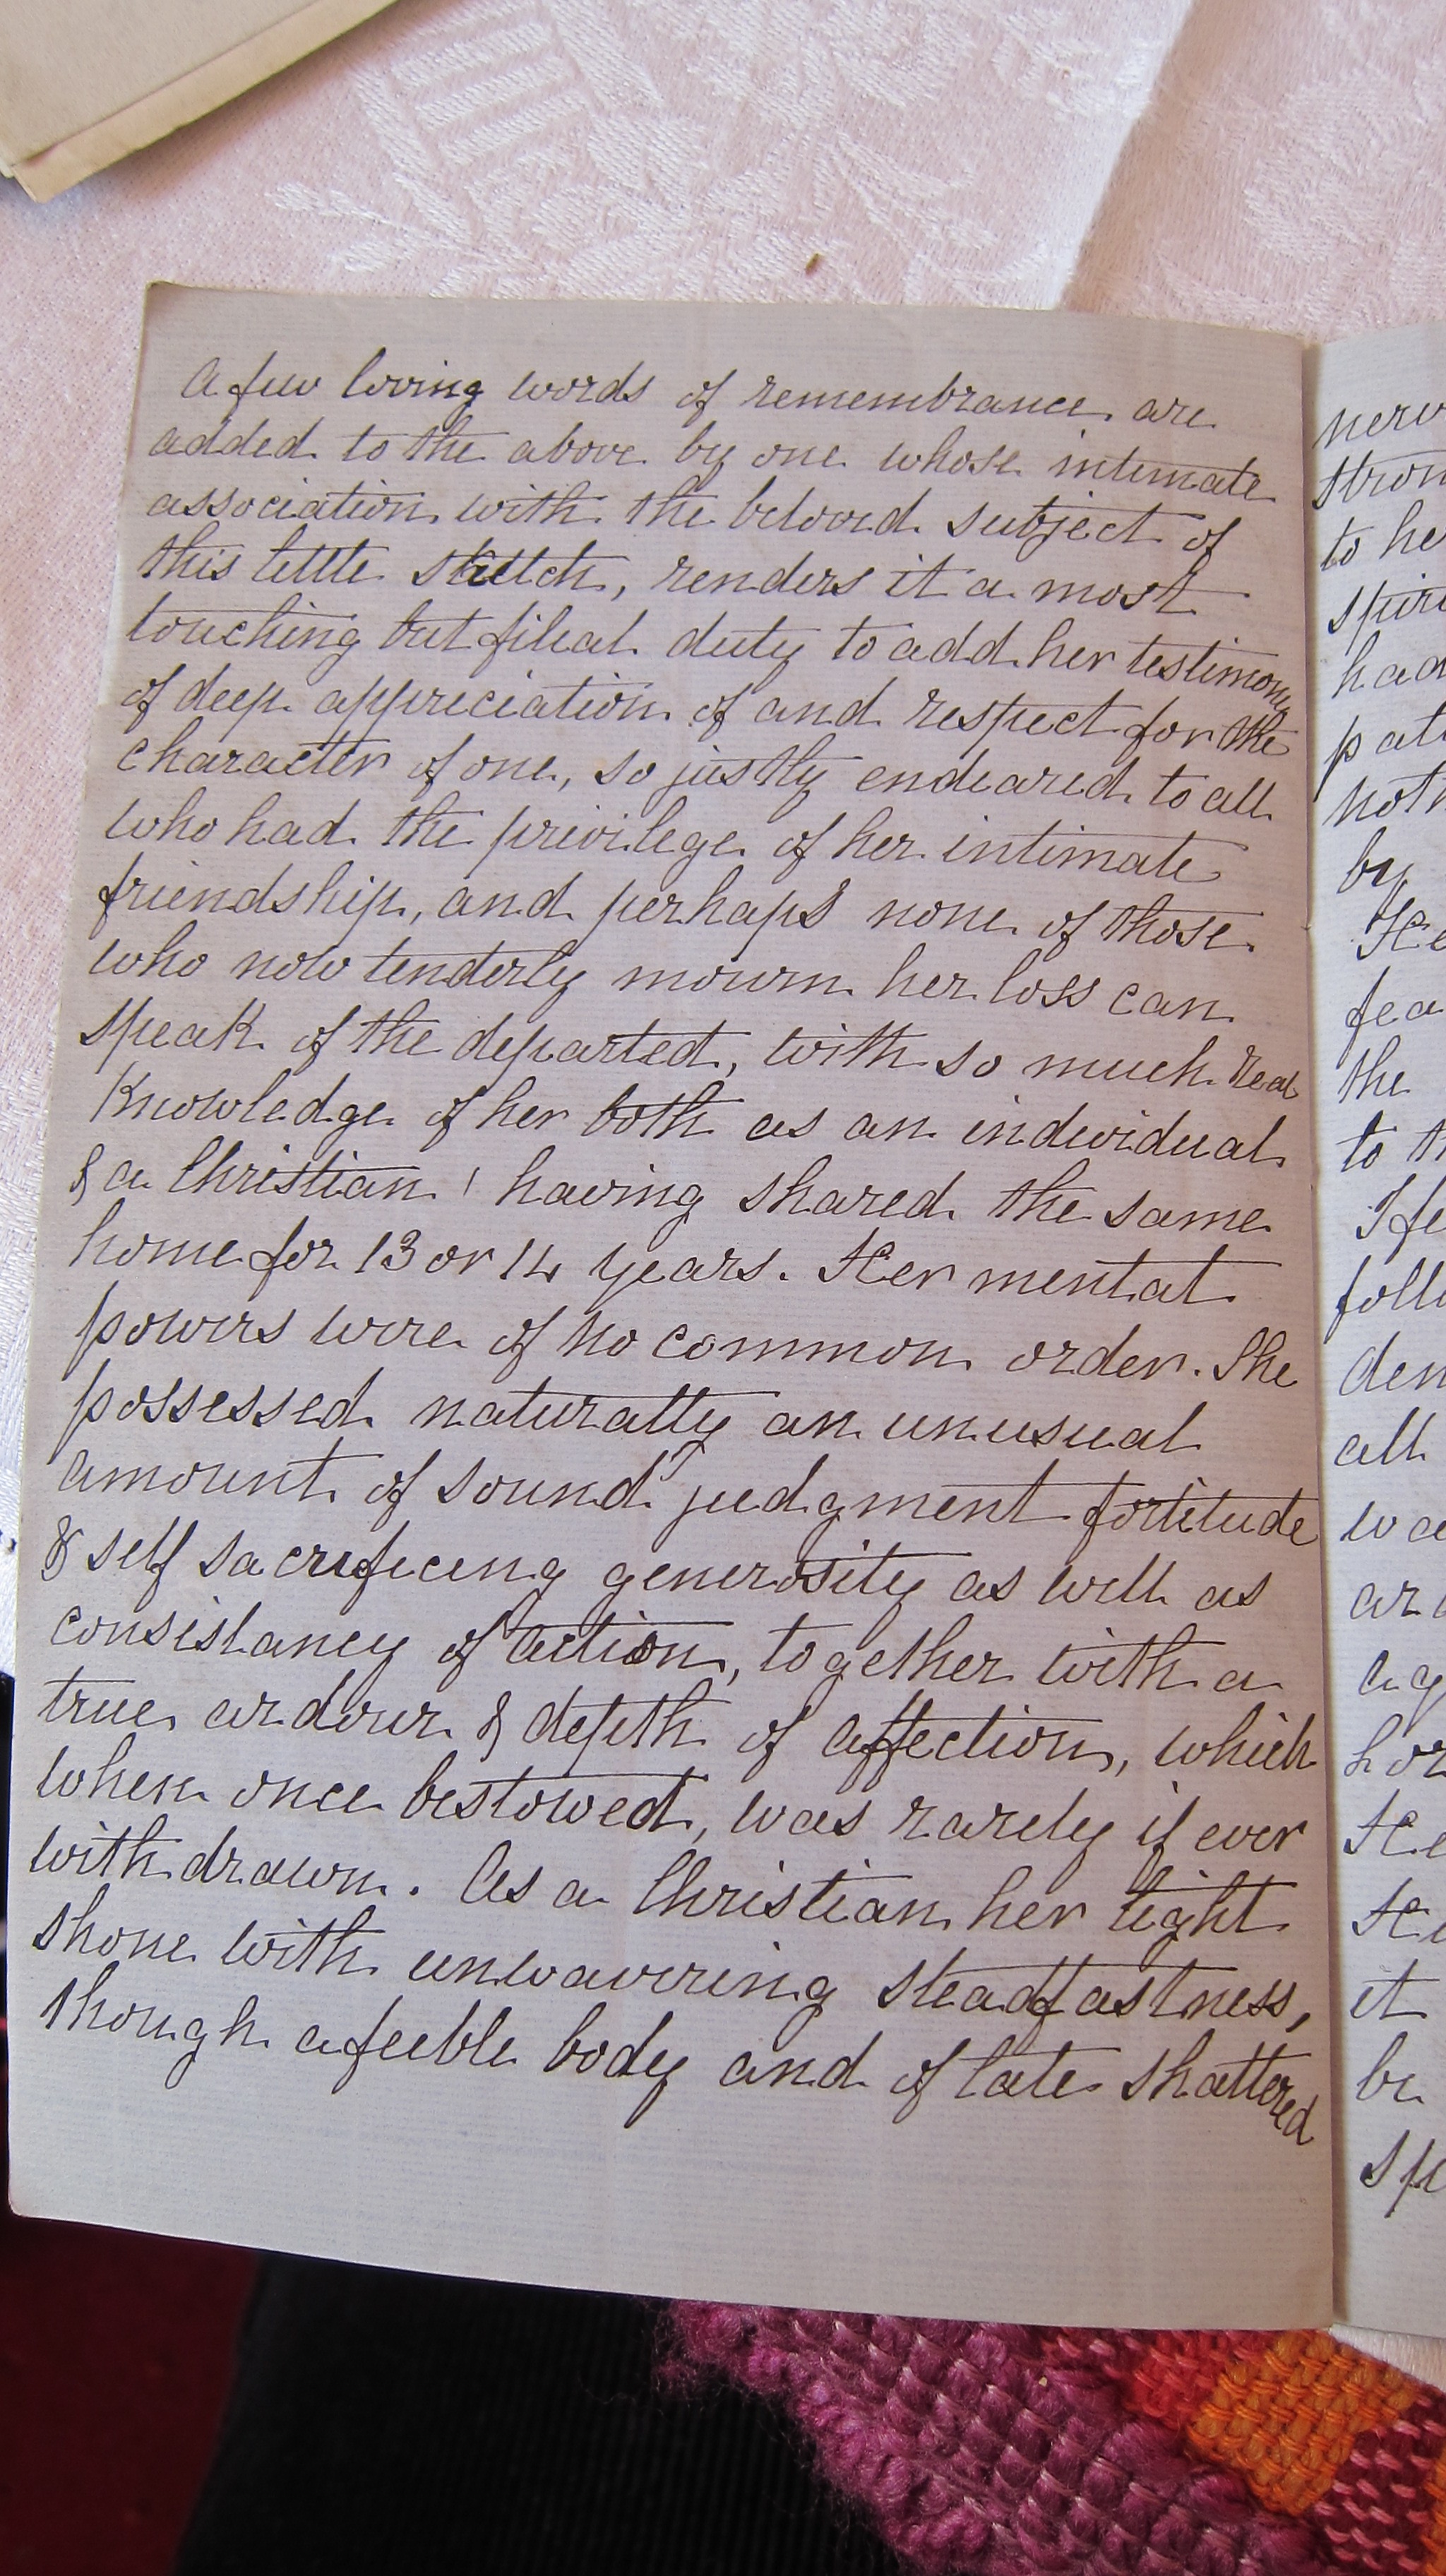 A few loving words of remembrance are
added to the above by one whose intimate
association with the beloved subject of
this little sketch, renders it a most
touching but filial duty to add her testimony
of deep appreciation of and respect for the
character of one, so justly endeared to all
who had the privilege of her intimate
friendship, and perhaps none of those
who now tenderly mourn her loss can
speak of the departed, with so much real
knowledge of her both as an individual
& a Christian ! having shared the same
home for 13 or 14 years. Her mental
powers were of no common order. She
possessed naturally an unusual
amount of sound judgment fortitude
& self sacrificing generosity as well as
consistancy of action, together with a
true ardour & depth of affection, which
when once bestowed, was rarely if ever
withdrawn. As a Christian her light
shone with unwavering steadfastness,
though a feeble body and of late shattered
to he
had
by
the
all
it
be